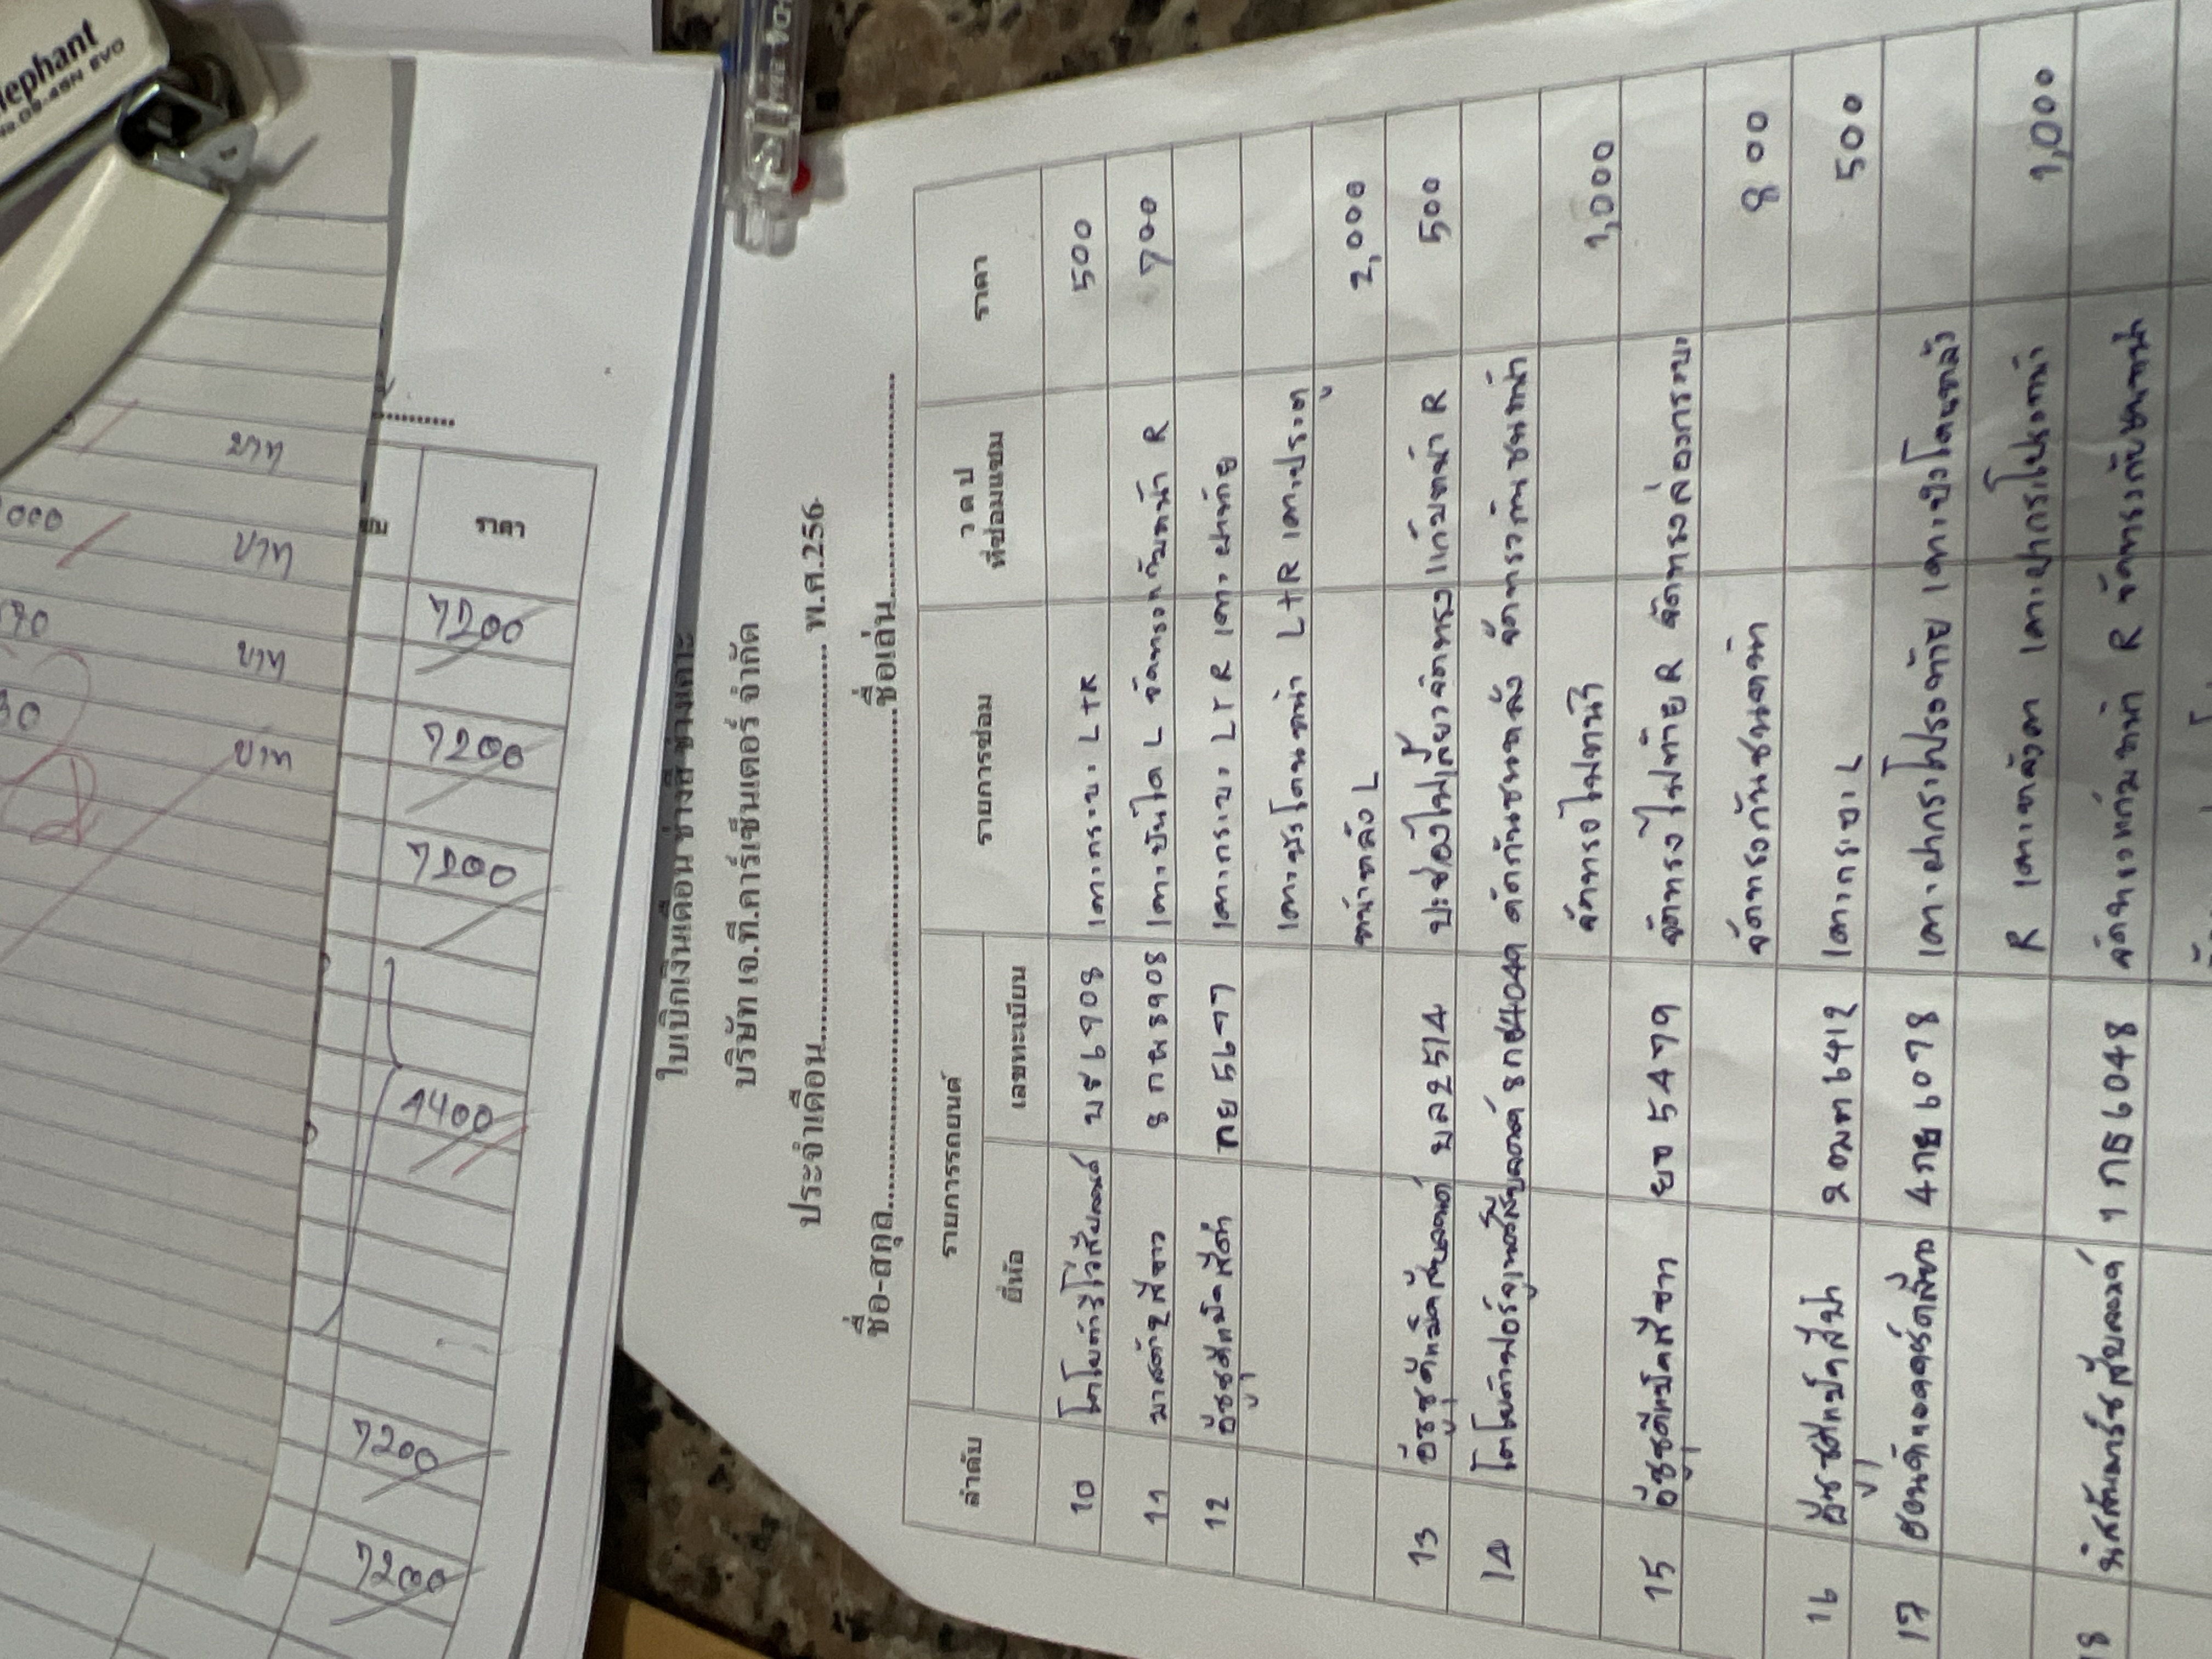 elephant
No.DS-45N EVO
บาท
000 บาท
บาท
30 บาท
ราคา
7200
7200
7200
1400
7200
7200
ใบเบิกเงินเดือน ช่างสี ช่างเคาะ
บริษัท เจ.ที.คาร์เซ็นเตอร์ จำกัด
ประจำเดือน.......................... พ.ศ.256
ชื่อ-สกุล..........................ชื่อเล่น..........................
ลำดับ รายการรถยนต์ รายการซ่อม ว ด ป ที่ซ่อมแซม ราคา
ยี่ห้อ เลขทะเบียน
10 โตโยต้ารีโว่สีบลอนด์ บร 6908 เคาะกระบะ L+R 500
11 มาสด้า2สีขาว 8กฬ8908 เคาะบันได L จัดทรงกันหน้า R 700
12 อีซูซุดีแม็คสีดำ กย 5677 เคาะกระบะ L+R เคาะฝาท้าย
เคาะบังโคลนหน้า L+R เคาะประตู
หน้าหลัง L 2,000
13 อีซูซุดีแม็คสีบลอนด์ บล 2514 ปะช่องไฟเลี้ยวจัดทรงแก้มหน้า R 500
14 โตโยต้าฟอร์จูนเนอร์สีบลอนด์ ดัดกันชนหลัง จัดทรงกันชนหน้า
จัดทรงไฟหน้า 1,000
15 อีซูซุดีแม็คสีขาว ยอ 5479 จัดทรงไฟท้าย R จัดทรงล่องกระบะ
จัดทรงกันชนหน้า 800
16 อีซูซุดีแม็คสีฟ้า 2ฒฅ6412 เคาะกระบะ L 500
17 ฮอนด้าแอคคอร์ดสี 4กย 6078 เคาะฝากระโปรงท้าย เคาะบังโคลนหลัง
R เคาะหลังคา เคาะฝากระโปรงหน้า 1,000
18 นิสสันมาร์ชสีบลอนด์ 1กธ 6048 จัดทรงแก้มหน้า R จัดทรงกันชนหน้า